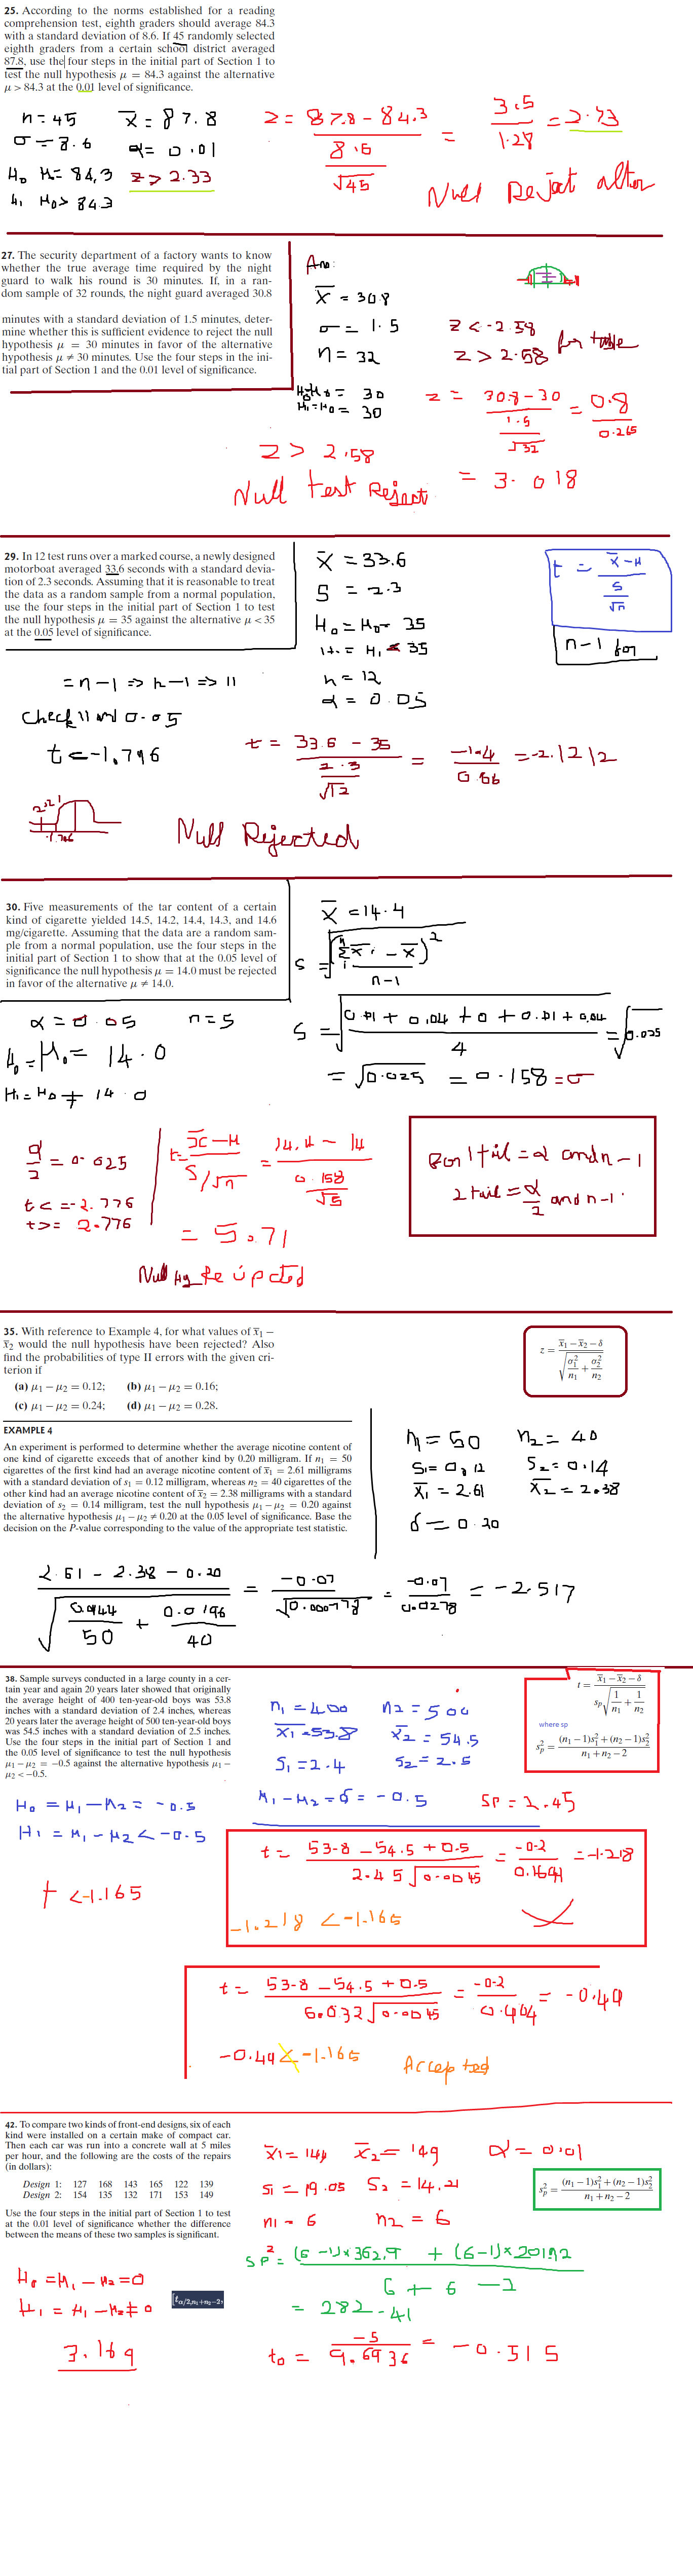 25. According to the norms established for a reading
comprehension test, eighth graders should average 84.3
with a standard deviation of 8.6. If 45 randomly selected
eighth graders from a certain school district averaged
87.8, use the four steps in the initial part of Section 1 to
test the null hypothesis μ = 84.3 against the alternative
μ > 84.3 at the 0.01 level of significance.
n = 45 x̄ = 87.8
σ = 8.6 α = 0.01
H₀ μ = 84.3 z > 2.33
H₁ μ₀ > 84.3
z = 87.8 - 84.3 / 8.6/√45 = 3.5/1.28 = 2.73
Null Reject alter
27. The security department of a factory wants to know
whether the true average time required by the night
guard to walk his round is 30 minutes. If, in a ran-
dom sample of 32 rounds, the night guard averaged 30.8
minutes with a standard deviation of 1.5 minutes, deter-
mine whether this is sufficient evidence to reject the null
hypothesis μ = 30 minutes in favor of the alternative
hypothesis μ ≠ 30 minutes. Use the four steps in the ini-
tial part of Section 1 and the 0.01 level of significance.
Ans:
x̄ = 30.8
σ = 1.5 z < -2.58
n = 32 z > 2.58
= 30
H₁ = μ₀ = 30
z = 30.8 - 30 / 1.5/√32 = 0.8/0.265
= 3.018
z > 2.58
Null test Reject
29. In 12 test runs over a marked course, a newly designed
motorboat averaged 33.6 seconds with a standard devia-
tion of 2.3 seconds. Assuming that it is reasonable to treat
the data as a random sample from a normal population,
use the four steps in the initial part of Section 1 to test
the null hypothesis μ = 35 against the alternative μ < 35
at the 0.05 level of significance.
x̄ = 33.6
s = 2.3
H₀ = μ₀ = 35
H₁ = μ₁ < 35
n = 12
α = 0.05
t = x̄ - μ / s/√n
n-1 for
= n-1 => n-1 => 11
Check 11 and 0.05
t <= -1.796
t = 33.6 - 35 / 2.3/√12 = -1.4/0.66 = -2.1212
-1.796
Null Rejected
30. Five measurements of the tar content of a certain
kind of cigarette yielded 14.5, 14.2, 14.4, 14.3, and 14.6
mg/cigarette. Assuming that the data are a random sam-
ple from a normal population, use the four steps in the
initial part of Section 1 to show that at the 0.05 level of
significance the null hypothesis μ = 14.0 must be rejected
in favor of the alternative μ ≠ 14.0.
x̄ = 14.4
s = √(Σ xᵢ - x̄)² / n-1
α = 0.05 n = 5
H₀ = μ₀ = 14.0
H₁ = μ₀ ≠ 14.0
s = √0.01 + 0.04 + 0 + 0.01 + 0.04 / 4 = √0.025
= √0.025 = 0.158 = σ
α/2 = 0.025
t <= -2.776
t >= 2.776
t = x̄ - μ / s/√n = 14.4 - 14 / 0.158/√5
= 5.71
Null Hy Rejected
For 1 tail = α and n-1
2 tail = α/2 and n-1.
35. With reference to Example 4, for what values of x̄₁ −
x̄₂ would the null hypothesis have been rejected? Also
find the probabilities of type II errors with the given cri-
terion if
(a) μ₁ − μ₂ = 0.12; (b) μ₁ − μ₂ = 0.16;
(c) μ₁ − μ₂ = 0.24; (d) μ₁ − μ₂ = 0.28.
z = x̄₁ − x̄₂ − δ / √(σ₁²/n₁ + σ₂²/n₂)
EXAMPLE 4
An experiment is performed to determine whether the average nicotine content of
one kind of cigarette exceeds that of another kind by 0.20 milligram. If n₁ = 50
cigarettes of the first kind had an average nicotine content of x̄₁ = 2.61 milligrams
with a standard deviation of s₁ = 0.12 milligram, whereas n₂ = 40 cigarettes of the
other kind had an average nicotine content of x̄₂ = 2.38 milligrams with a standard
deviation of s₂ = 0.14 milligram, test the null hypothesis μ₁ − μ₂ = 0.20 against
the alternative hypothesis μ₁ − μ₂ ≠ 0.20 at the 0.05 level of significance. Base the
decision on the P-value corresponding to the value of the appropriate test statistic.
n₁ = 50 n₂ = 40
s₁ = 0.12 s₂ = 0.14
x̄₁ = 2.61 x̄₂ = 2.38
δ = 0.20
2.61 - 2.38 - 0.20 / √(0.0144/50 + 0.0196/40) = -0.07/√0.000778 = -0.07/0.0278 = -2.517
38. Sample surveys conducted in a large county in a cer-
tain year and again 20 years later showed that originally
the average height of 400 ten-year-old boys was 53.8
inches with a standard deviation of 2.4 inches, whereas
20 years later the average height of 500 ten-year-old boys
was 54.5 inches with a standard deviation of 2.5 inches.
Use the four steps in the initial part of Section 1 and
the 0.05 level of significance to test the null hypothesis
μ₁ − μ₂ = −0.5 against the alternative hypothesis μ₁ −
μ₂ < −0.5.
n₁ = 400 n₂ = 500
x̄₁ = 53.8 x̄₂ = 54.5
s₁ = 2.4 s₂ = 2.5
μ₁ - μ₂ = δ = -0.5 Sp = 2.45
t = x̄₁ − x̄₂ − δ / sp√(1/n₁ + 1/n₂)
where sp
s²p = (n₁ − 1)s₁² + (n₂ − 1)s₂² / n₁ + n₂ − 2
H₀ = μ₁ - μ₂ = -0.5
H₁ = μ₁ - μ₂ < -0.5
t < -1.165
t = 53.8 - 54.5 + 0.5 / 2.45√0.0045 = -0.2/0.1641 = -1.218
-1.218 < -1.165
t = 53.8 - 54.5 + 0.5 / 6.032√0.0045 = -0.2/0.404 = -0.49
-0.49 < -1.165 Accepted
42. To compare two kinds of front-end designs, six of each
kind were installed on a certain make of compact car.
Then each car was run into a concrete wall at 5 miles
per hour, and the following are the costs of the repairs
(in dollars):
Design 1: 127 168 143 165 122 139
Design 2: 154 135 132 171 153 149
Use the four steps in the initial part of Section 1 to test
at the 0.01 level of significance whether the difference
between the means of these two samples is significant.
x̄₁ = 144 x̄₂ = 149 α = 0.01
s₁ = 19.05 s₂ = 14.21
n₁ = 6 n₂ = 6
s²p = (n₁ − 1)s₁² + (n₂ − 1)s₂² / n₁ + n₂ − 2
Sp² = (6-1)×362.9 + (6-1)×201.92 / 6 + 6 - 2
= 282.41
H₀ = μ₁ - μ₂ = 0
H₁ = μ₁ - μ₂ ≠ 0
tα/2,n₁+n₂−2,
3.169
t₀ = -5/9.6936 = -0.515